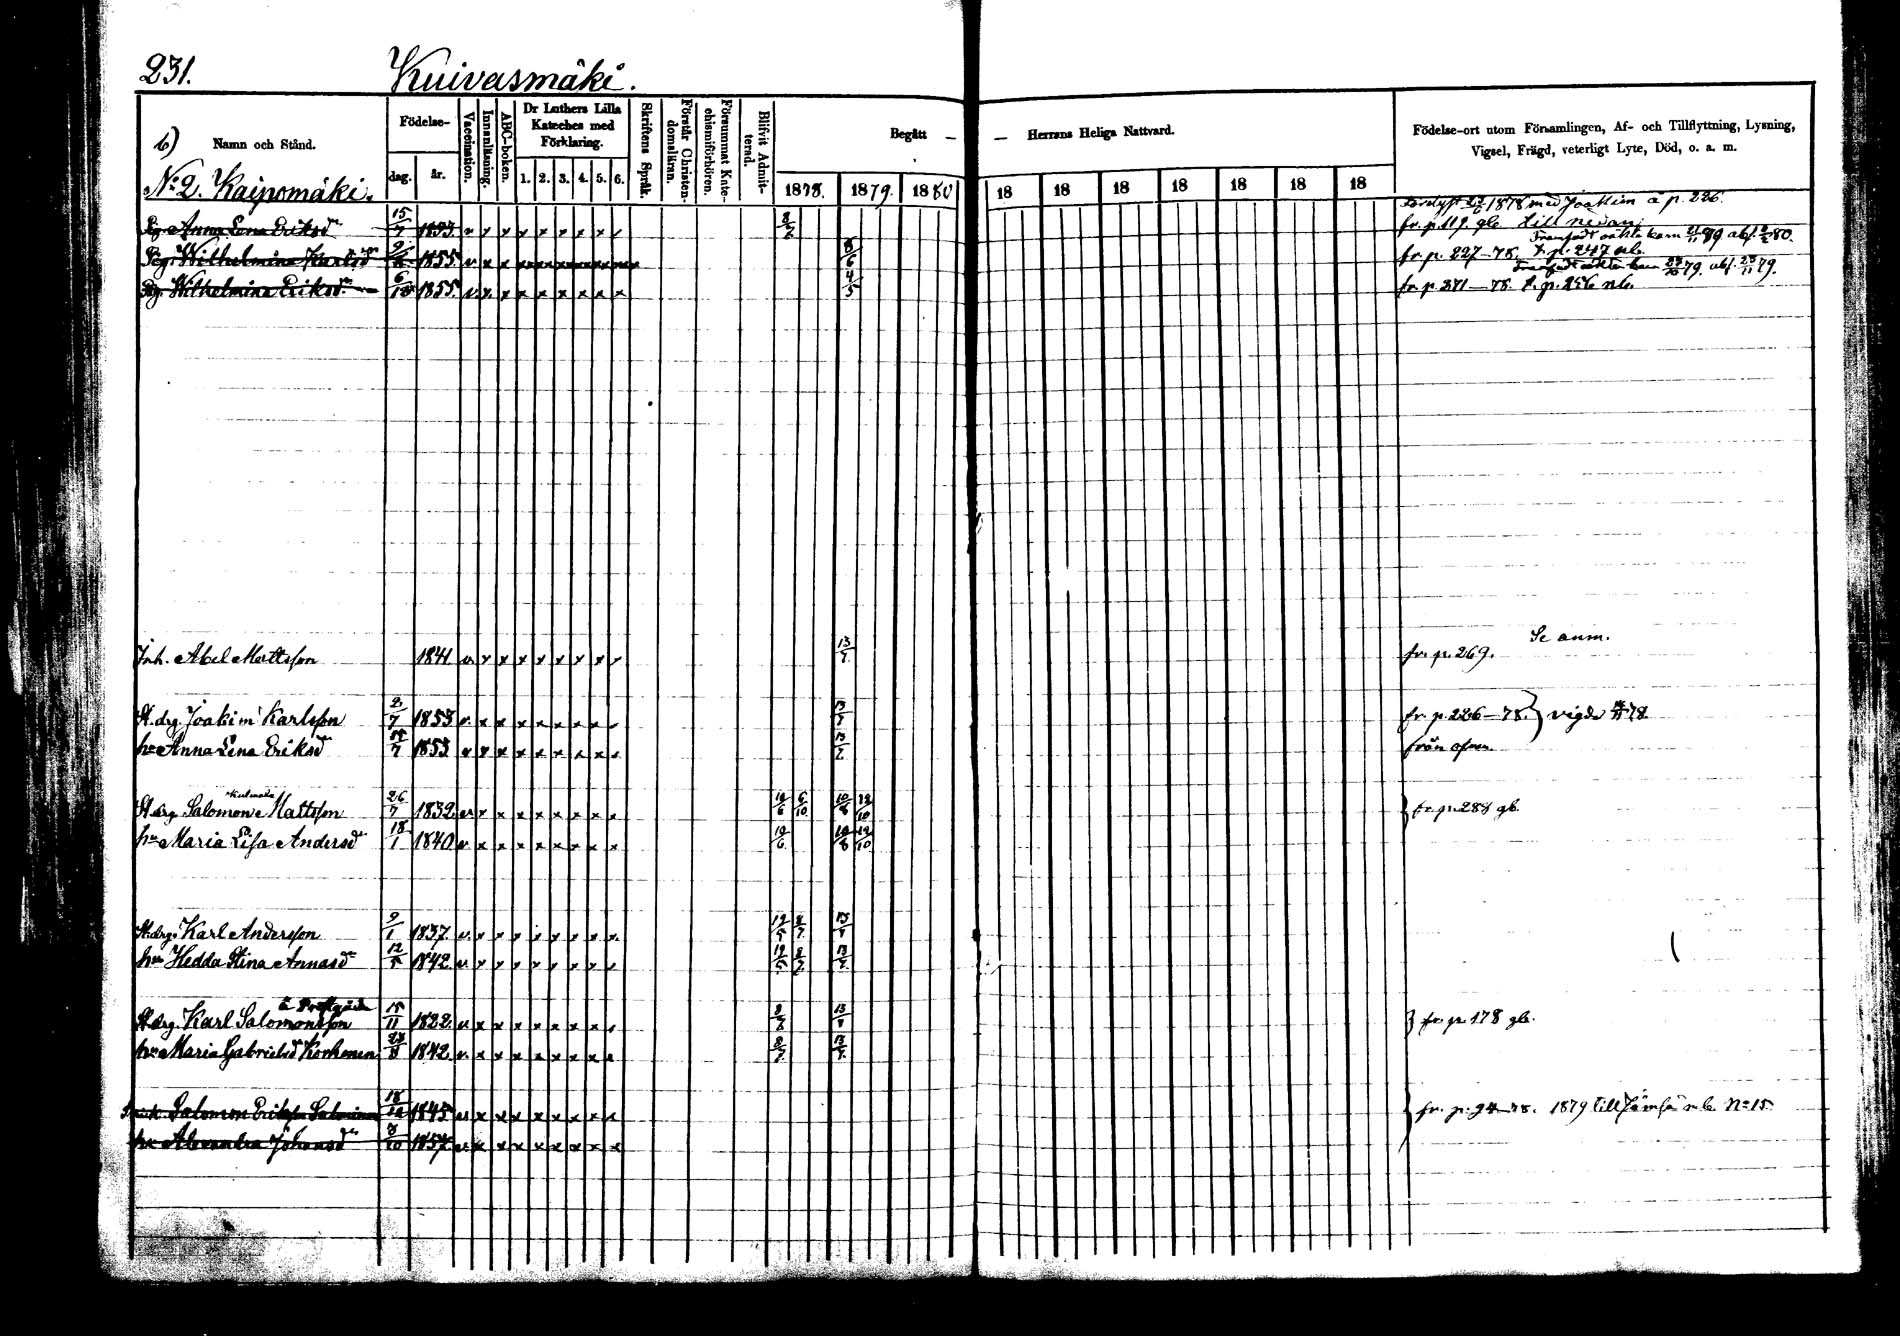 231. Kuivasmäki.
b) Namn och Stånd.
Födelse-
dag. år.
Vaccination.
Innanläsning.
ABC-boken.
Dr Luthers Lilla
Kateches med
Förklaring.
1. 2. 3. 4. 5. 6.
Skriftens Språk.
Förstår Christen-
domsläran.
Försummat Kate-
chismiförhören.
Blifvit Admit-
terad.
Begått — — Herrans Heliga Nattvard.
1878. 1879. 1880 18 18 18 18 18 18 18
Födelse-ort utom Församlingen, Af- och Tillflyttning, Lysning,
Vigsel, Frägd, veterligt Lyte, Död, o. a. m.
No 2. Kaipomäki.
1878 med Joakim å p. 226.
Pig. Anna Lena Eriksdr 15/7 1853 v x x x x x x x fr. p. 119. gb. till nedan
Pig. Wilhelmina Karlsdr 1855 v x x 8/6 fr. p. 227–78. T. p. 247 nb.
Pig. Wilhelmina Eriksdr 1855 v x x x x x x x x 4/5 fr. p. 271–78. t. p. 256 nb.
Inh. Abel Mattsson 1841 v x x x x x x x 13/7 fr. p. 269. Se anm.
St. drg. Joakim Karlsson 2/7 1853 v x x x x x x x 13/7 fr. p. 226–78. } vigde 78
hu Anna Lena Eriksdr 15/7 1853 v x x x x x x x 13/7 från ofvan.
St. drg. Salomon Mattsson 26/7 1832 v x x x x x x x 6/10 10/8 12/10 } fr. p. 288 gb.
hu Maria Lisa Andersdr 18/1 1840 v x x x x x x x x 10/8 12/10
St. drg. Karl Andersson 9/1 1837 v x x x x x x x x
hu Hedda Stina Annasdr 12/5 1842 v x x x x x x x
St. drg. Karl Salomonsson 15/11 1822 v x x x x x x x } fr. p. 178 gb.
hu Maria Gabrielsd Korhonen 1842 v x x x x x x x x 8/7
Salomon Eriksson Salminen 1845 v x x x x x x x } fr. p. 94–78. 1879 till Jämsä nb No 15
hu Alexandra Johansdr 8/10 1857 v x x x x x x x x